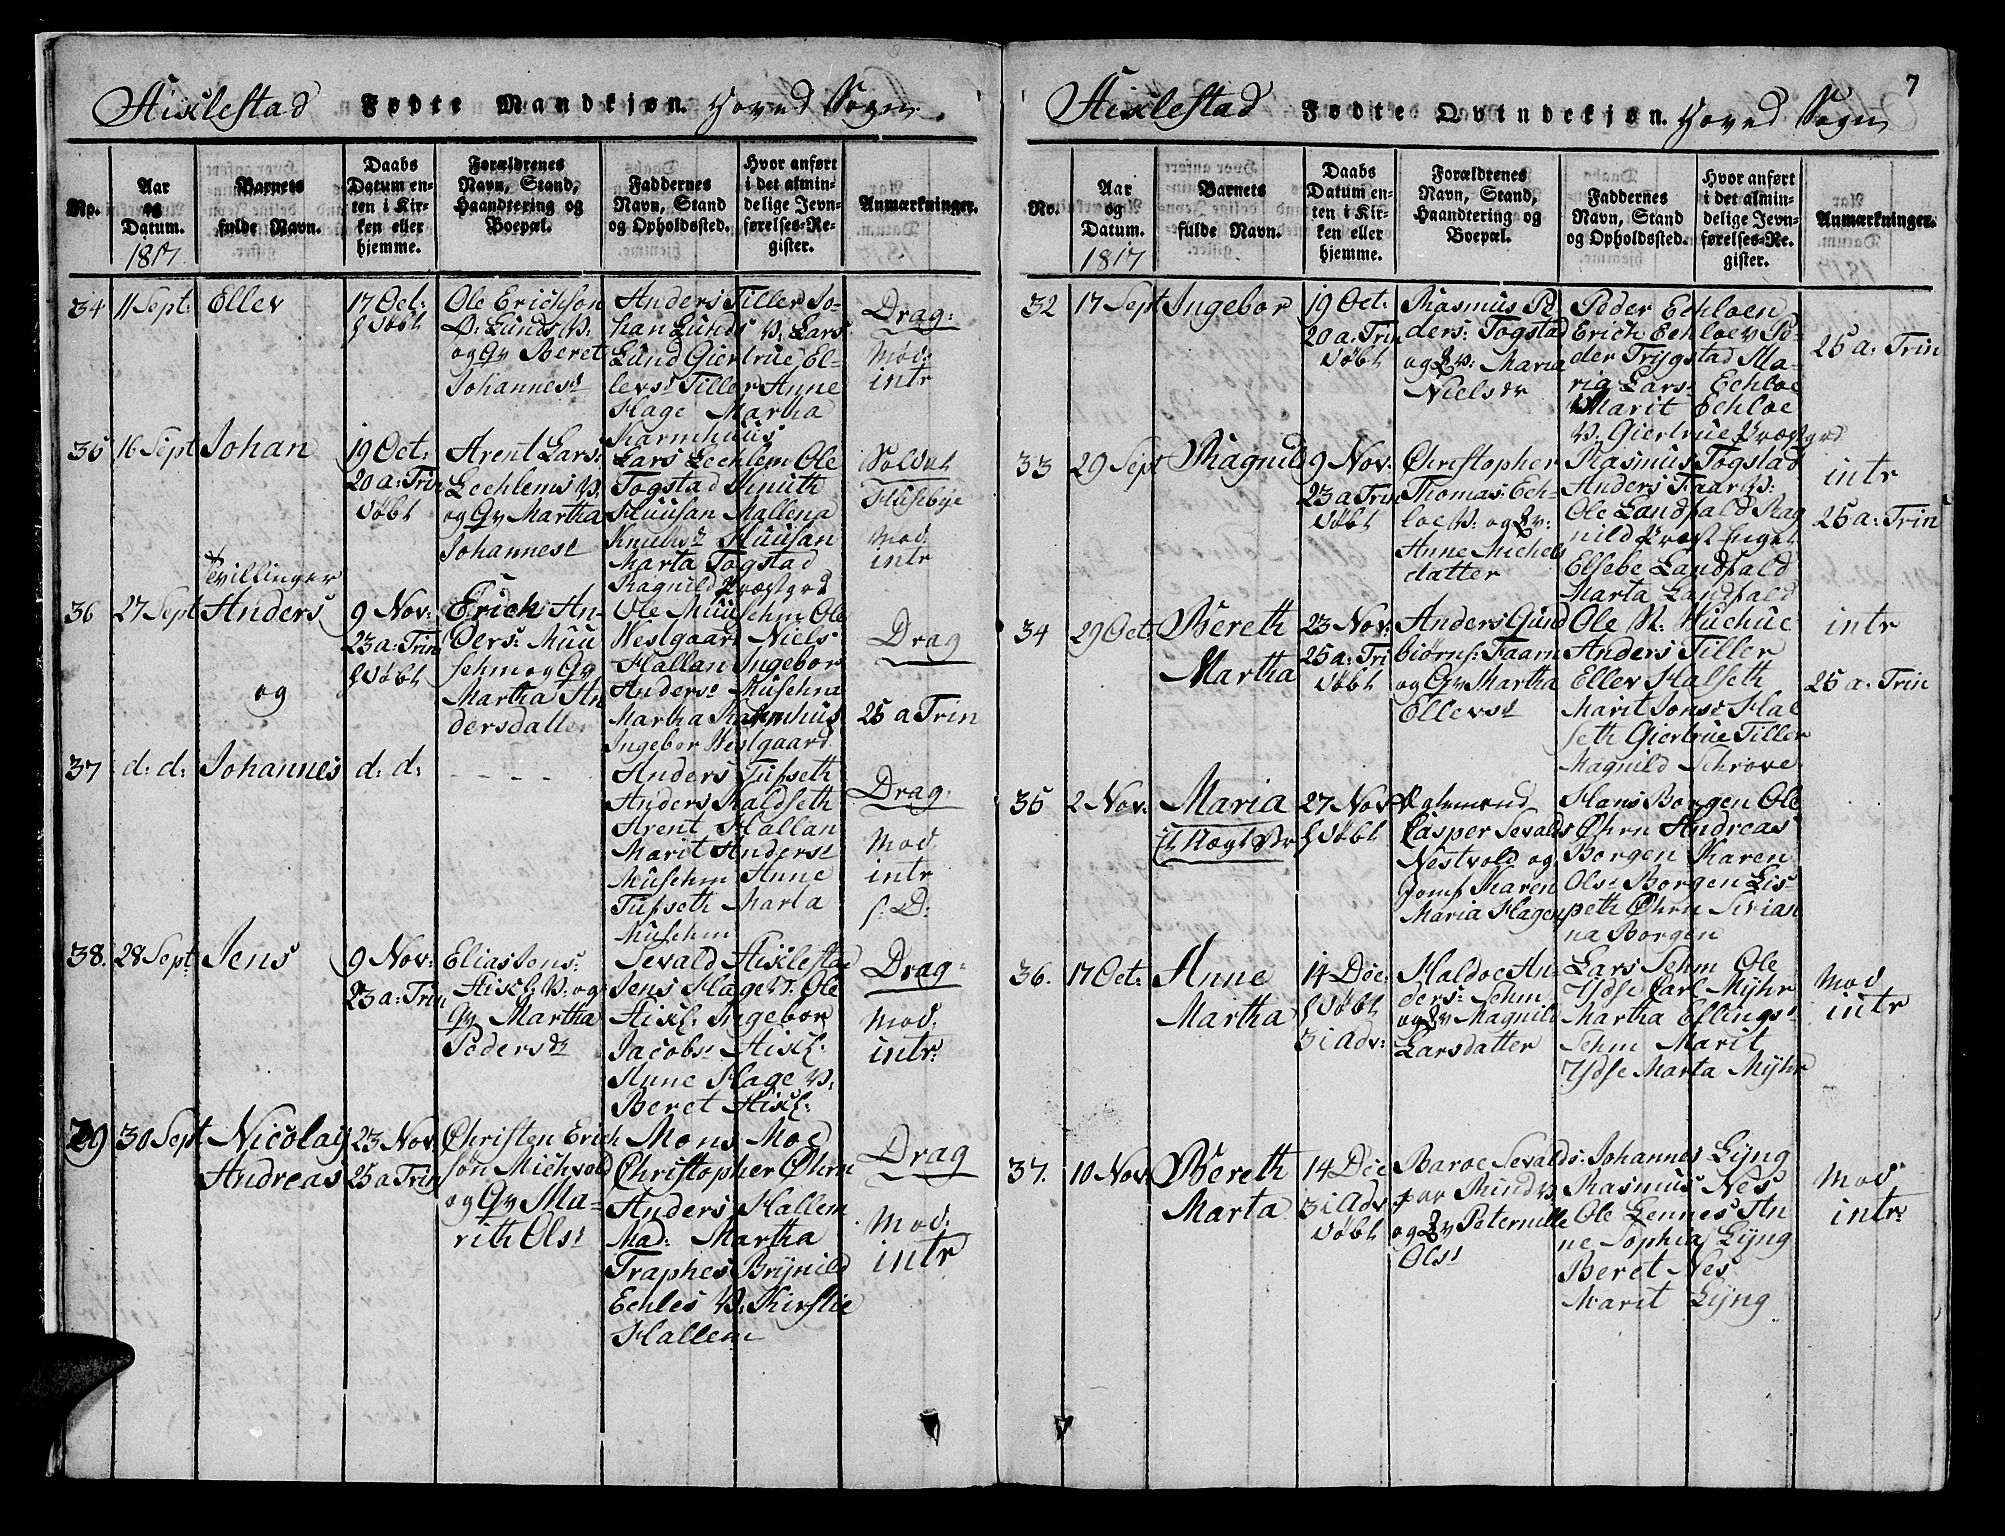 Stixlestad Fødte Mandkjøn. Hoved Sogn.
No.
Aar og Datum. 1817
Barnets fulde Navn.
Daabs Datum enten i Kirken eller hjemme.
Forældrenes Navn, Stand, Haandtering og Boepæl.
Faddernes Navn, Stand og Opholdssted.
Hvor anført i det almindelige Jevnførelses-Register.
Anmærkninger.
34 11 Sept: Ellev
17 Oct:
hdøbt
Ole Erichson
Lunds V:
og Gv Beret
Johannesd
Anders Tiller Jo-
han Lunds V: Lars
Lund Giertrue El-
levsd Tiller Anne
Hage Martha
Karmhuus
Drag:
Mod:
intr
35 16 Sept Johan
19 Oct:
20 a: Trin
døbt
Arent Lars:
Lechlems V:
og Gv Martha
Johannesd
Lars Lechlem Ole
Togstad Knuth
Huusan Mallena
Knuds Huusan
Marta Togstad
Ragnild Præstgrd
Soldat
Husebye
Mod
intr
Tvillinger
36 27 Sept Anders
og
9 Nov:
23 a: Trin
hdøbt
Erich An-
ders: Muu
sehm og Gv
Martha An
dersdatter
Ole Muusehm Ole
Westgaard Niels
Hallan Ingebor
Andersd Musehm
Martha Karmhus
Ingebor Westgaard
Drag
25 a Trin
37 d: d: Johannes d: d: - - - -
Anders Tufseth
Anders Kaldseth
Arent Hallan
Marit Andersd
Musehm Anne
Tufseth Marta
Musehm
Drag:
Mod
intr
s: D:
38. 28 Sept Jens
9 Nov:
23 a: Trin
Elias Jens:
Stixl: V: og
Gv Martha
Pedersdr
Sevald Stixlestad
Jens Hage V: Ole
Stixl: Ingebor
Jacobsd Stixl:
Anne Hage V:
Beret Stixl:
Drag:
Mod.
intr:
39 30 Sept Nicolay
Andreas
23 Nov
25 a Trin
Christen Erich
son Michvold
og Gv Ma-
rith Olsd
Mons Moe
Christopher Øhrn
Anders Hallem
Mad: Martha
Traphes Brynild
Echles V: Kirstie
Hallem
Drag
Mod:
intr
7
Stixlestad Fødte Qvindekjøn. Hoved Sogn
No.
Aar og Datum. 1817
Barnets fulde Navn.
Daabs Datum enten i Kirken eller hjemme.
Forældrenes Navn, Stand, Haandtering og Boepæl.
Faddernes Navn, Stand og Opholdssted.
Hvor anført i det almindelige Jevnførelses-Register.
Anmærkninger.
32 17 Sept Ingebor
19 Oct:
20 a: Trin
døbt
Rasmus Pe
ders: Togstad
og Qv: Maria
Nielsdr
Peder Echloen
Erich Echloev Pe-
der Trygstad Ma-
ria Lars: Echloe
Marit Echloe
V: Giertrue Præstgrd
25 a: Trin
33 29 Sept Magnild
9 Nov:
23 a Trin
døbt
Christopher
Thomas: Ech-
loe V: og Qv:
Anne Michels
datter
Rasmus Togstad
Anders Faar V:
Ole Landfald Rag
nild Præst Enget
Elsebe Landfald
Marta Landfald
intr
25 a: Trin
34 29 Oct: Bereth
Martha
23 Nov:
25 a: Tri
døbt
Anders Gund
biørns: Faarn
og Gv Martha
Ellevsd
Ole V: Huehue
Anders Tiller
Ellev Halseth
Marit Jonsd Hal
seth Giertrue Tiller
Magnild Schrove
intr
25 a: Trin
35 2 Nov: Maria
27 Nov
hdøbt
Casper Sevalds
Nestvold og
Jomf Karen
Maria Hagen
Hans Borgen Ole
Øhrn Andreas
Borgen Karen
Olsd Borgen Lis-
peth Øhrn Sirian
na Borgen
36. 17 Oct: Anne
Martha
14 Dec
hdøbt
3 i Adv:
Haldoe An-
ders: Sehm
og Qv Magnild
Larsdatter
Lars Sehm Ole
Ydse Carl Myhr
Martha Ellings:
Sehm Marit
Ydse Marta Myhr
Mod
intr
37. 10 Nov: Bereth
Marta
14 Dec
3 i Adv
døbt
Baroe Sevalds:
Rind V:
og Qv Peternille
Olsd
Johannes Lyng
Rasmus Nes
Ole Lennes An
ne Sophia Lyng
Beret Nes
Marit Lyng
Mod
intr: